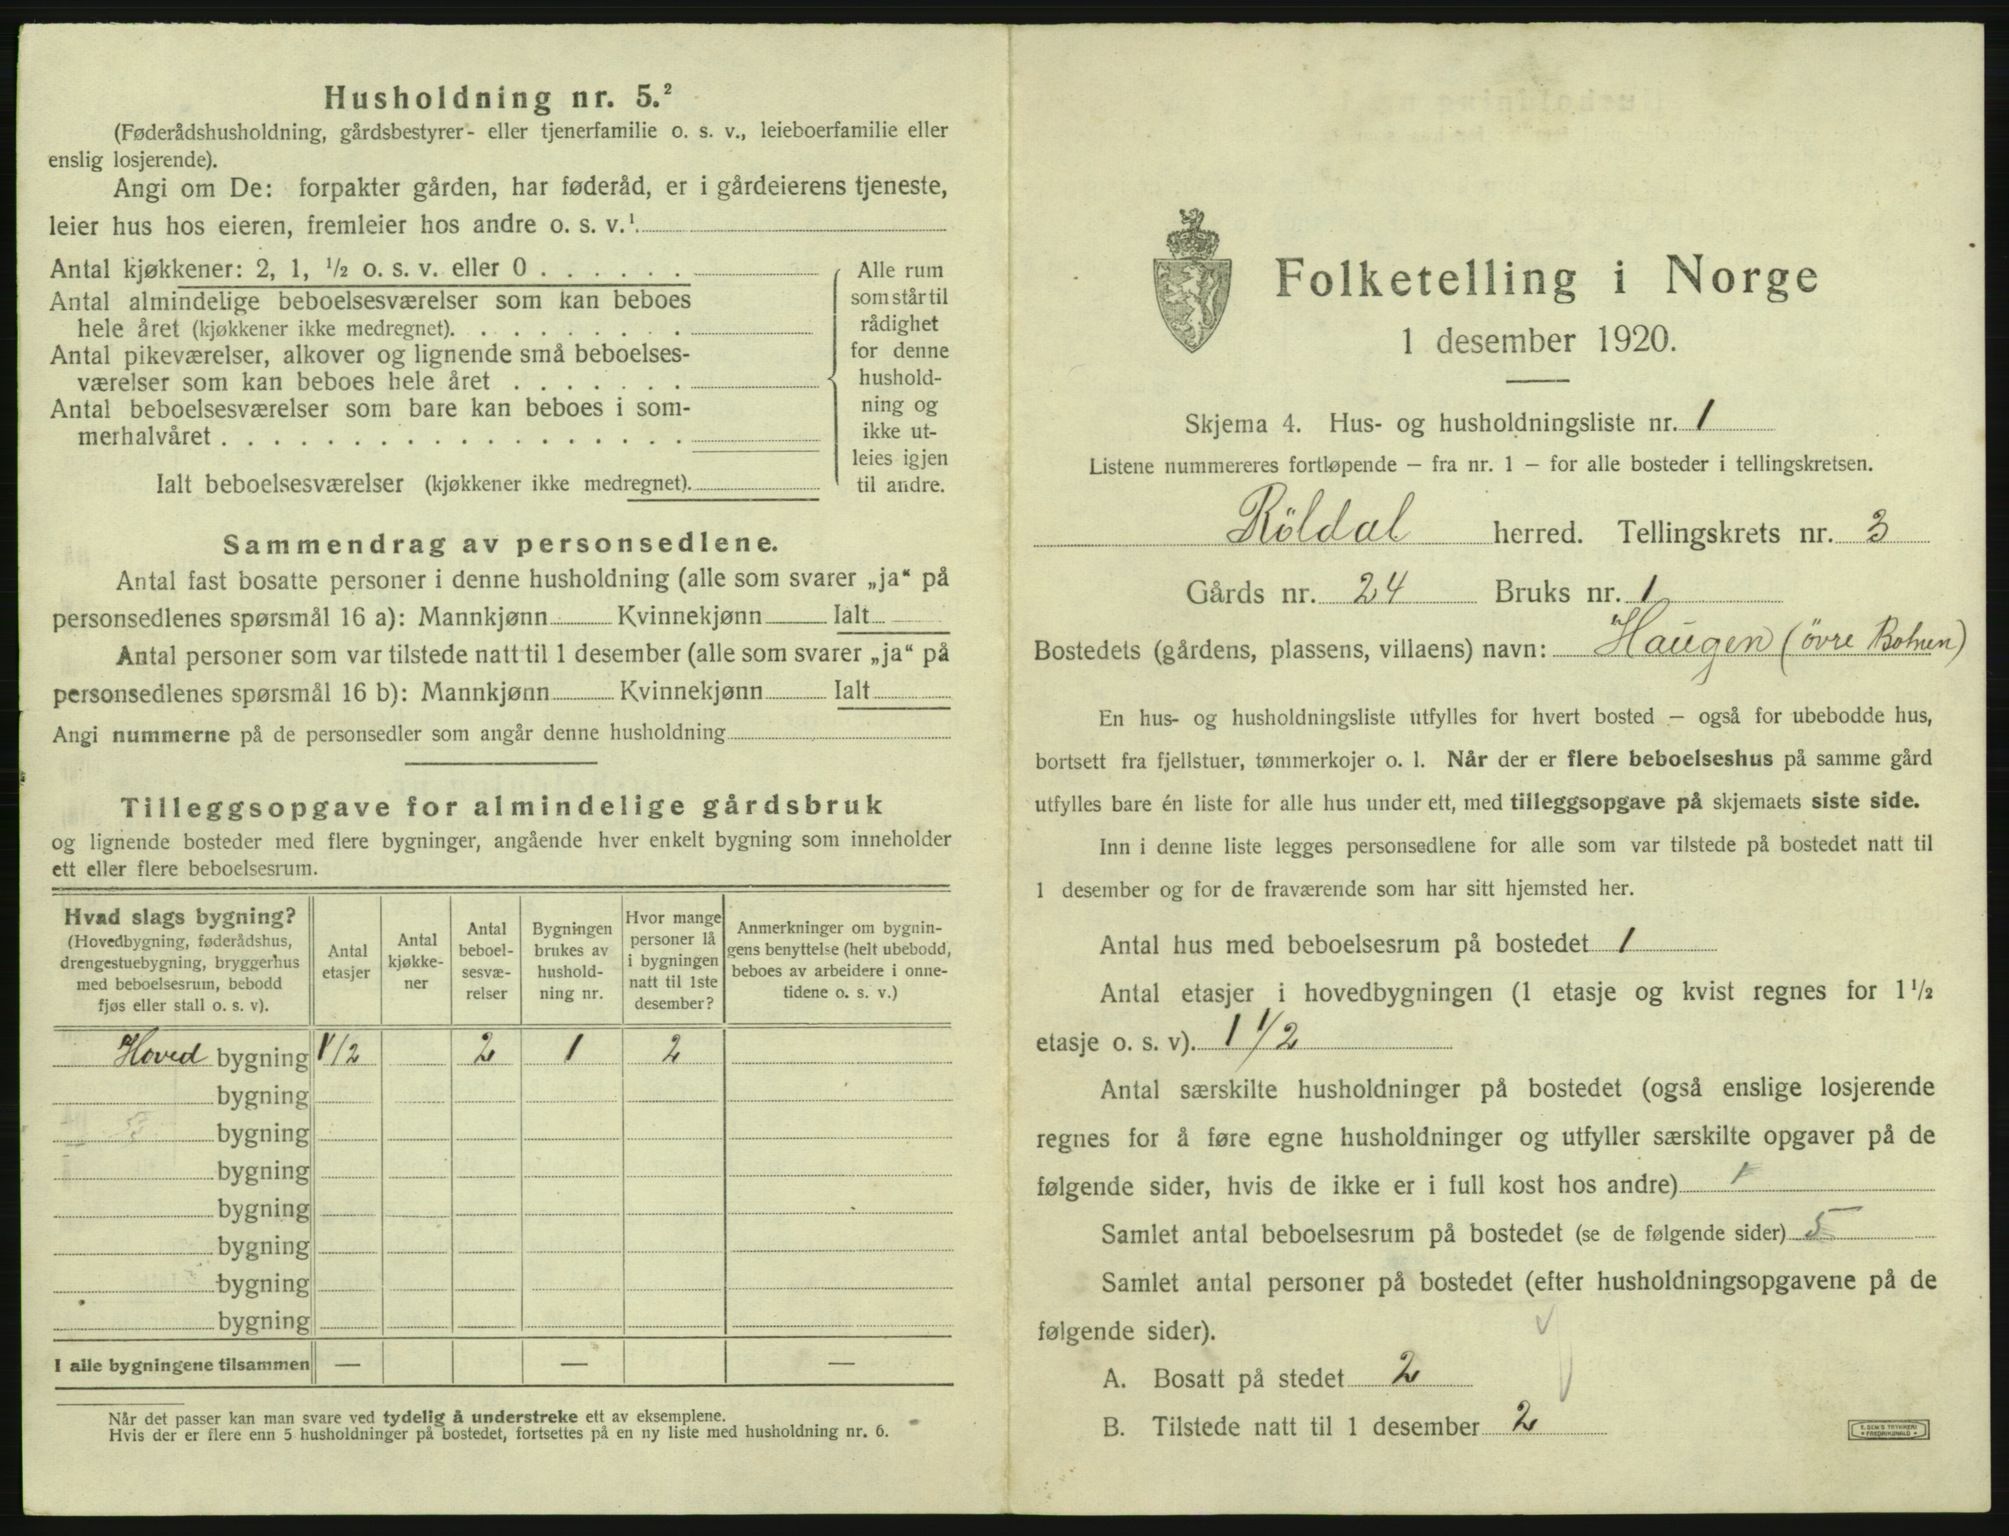 Husholdning nr. 5.²
(Føderådshusholdning, gårdsbestyrer- eller tjenerfamilie o. s. v., leieboerfamilie eller
enslig losjerende).
Angi om De: forpakter gården, har føderåd, er i gårdeierens tjeneste,
leier hus hos eieren, fremleier hos andre o. s. v.¹
Antal kjøkkener: 2, 1, ½ o. s. v. eller 0 . . . . . .
Antal almindelige beboelsesværelser som kan beboes
hele året (kjøkkener ikke medregnet). . . . . . . . .
Antal pikeværelser, alkover og lignende små beboelses-
værelser som kan beboes hele året . . . . . . .
Antal beboelsesværelser som bare kan beboes i som-
merhalvåret . . . . . . . . . . . . . . . . . .
Ialt beboelsesværelser (kjøkkener ikke medregnet).
Alle rum
som står til
rådighet
for denne
hushold-
ning og
ikke ut-
leies igjen
til andre.
Sammendrag av personsedlene.
Antal fast bosatte personer i denne husholdning (alle som svarer „ja“ på
personsedlenes spørsmål 16 a): Mannkjønn Kvinnekjønn Ialt
Antal personer som var tilstede natt til 1 desember (alle som svarer „ja“ på
personsedlenes spørsmål 16 b): Mannkjønn Kvinnekjønn Ialt
Angi nummerne på de personsedler som angår denne husholdning
Tilleggsopgave for almindelige gårdsbruk
og lignende bosteder med flere bygninger, angående hver enkelt bygning som inneholder
ett eller flere beboelsesrum.
Hvad slags bygning?
(Hovedbygning, føderådshus,
drengestuebygning, bryggerhus
med beboelsesrum, bebodd
fjøs eller stall o. s. v).
Antal
etasjer
Antal
kjøkke-
ner
Antal
beboel-
sesvæ-
relser
Bygningen
brukes av
hushold-
ning nr.
Hvor mange
personer lå
i bygningen
natt til 1ste
desember?
Anmerkninger om bygnin-
gens benyttelse (helt ubebodd,
beboes av arbeidere i onne-
tidene o. s. v.)
Hoved bygning 1 1/2 2 1 2
bygning
bygning
bygning
bygning
bygning
bygning
bygning
I alle bygningene tilsammen — — —
Når det passer kan man svare ved tydelig å understreke ett av eksemplene.
Hvis der er flere enn 5 husholdninger på bostedet, fortsettes på en ny liste med husholdning nr. 6.
Folketelling i Norge
1 desember 1920.
Skjema 4. Hus- og husholdningsliste nr. 1
Listene nummereres fortløpende – fra nr. 1 – for alle bosteder i tellingskretsen.
Röldal herred. Tellingskrets nr. 3
Gårds nr. 24 Bruks nr. 1
Bostedets (gårdens, plassens, villaens) navn: Haugen (övre Botnen)
En hus- og husholdningsliste utfylles for hvert bosted – også for ubebodde hus,
bortsett fra fjellstuer, tømmerkojer o. l. Når der er flere beboelseshus på samme gård
utfylles bare én liste for alle hus under ett, med tilleggsopgave på skjemaets siste side.
Inn i denne liste legges personsedlene for alle som var tilstede på bostedet natt til
1 desember og for de fraværende som har sitt hjemsted her.
Antal hus med beboelsesrum på bostedet 1
Antal etasjer i hovedbygningen (1 etasje og kvist regnes for 1½
etasje o. s. v). 1 1/2
Antal særskilte husholdninger på bostedet (også enslige losjerende
regnes for å føre egne husholdninger og utfyller særskilte opgaver på de
følgende sider, hvis de ikke er i full kost hos andre) 1
Samlet antal beboelsesrum på bostedet (se de følgende sider) 5
Samlet antal personer på bostedet (efter husholdningsopgavene på de
følgende sider).
A. Bosatt på stedet 2
B. Tilstede natt til 1 desember 2